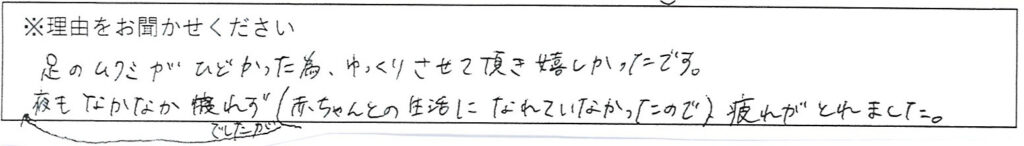 ※理由をお聞かせください
足のムクミがひどかった為、ゆっくりさせて頂き嬉しかったです。
夜もなかなか寝れず(赤ちゃんとの生活になれていなかったので)疲れがとれました。
でしたが